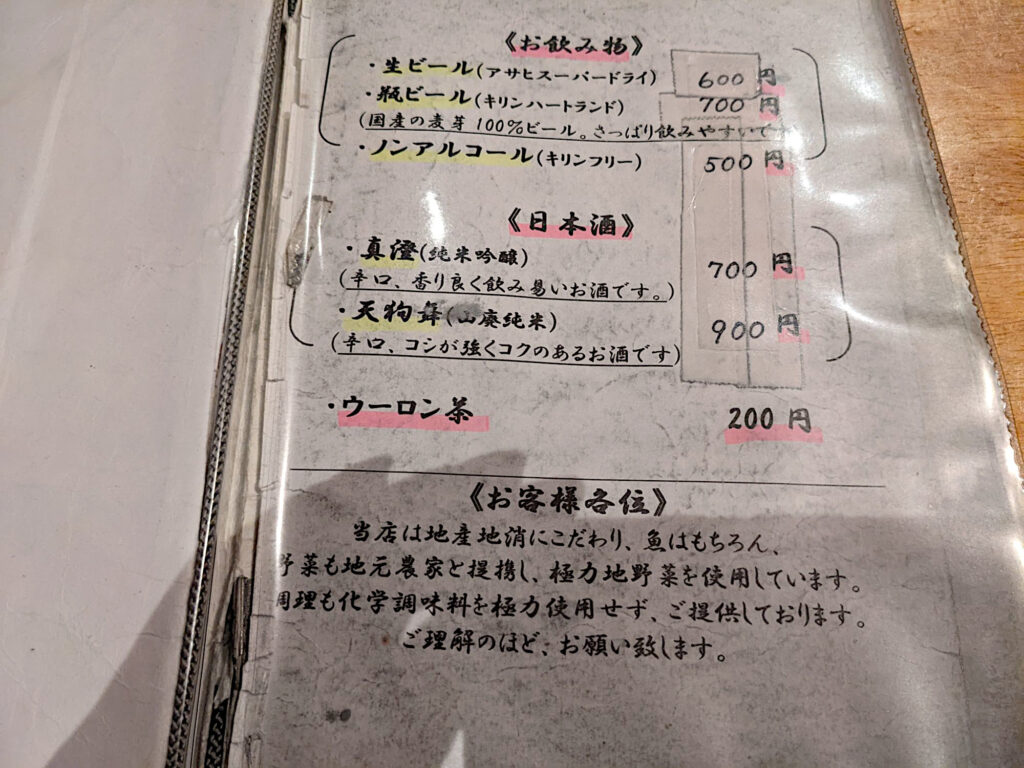 《お飲み物》
・生ビール(アサヒスーパードライ) 600円
・瓶ビール(キリンハートランド) 700円
(国産の麦芽100%ビール。さっぱり飲みやすいで
・ノンアルコール(キリンフリー) 500円
《日本酒》
・真澄(純米吟醸) 700円
(辛口、香り良く飲み易いお酒です。)
・天狗舞(山廃純米) 900円
(辛口、コシが強くコクのあるお酒です)
・ウーロン茶 200円
《お客様各位》
当店は地産地消にこだわり、魚はもちろん、
野菜も地元農家と提携し、極力地野菜を使用しています。
調理も化学調味料を極力使用せず、ご提供しております。
ご理解のほど、お願い致します。